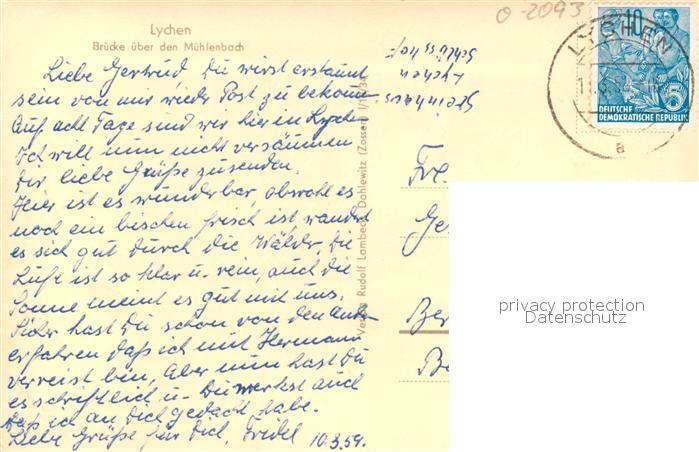 O-2093
Lychen
Brücke über den Mühlenbach
Liebe Gertrud, Du wirst erstaunt
sein von mir wieder Post zu bekom
Auf acht Tage sind wir hier in Lychen
Ich will nun nicht versäumen
Dir liebe Grüße zusenden.
Hier ist es wunderbar, obwohl es
noch ein bischen frisch ist, wandert
es sich gut durch die Wälder, die
Luft ist so klar u. rein, auch die
Sonne meint es gut mit uns.
Sicher hast Du schon von den
erfahren daß ich mit Hermann
verreist bin, Aber nun hast Du
es schriftlich u. Du merkst auch
daß ich an Dich gedacht habe.
Liebe Grüße für Dich, Friedel 10.3.59.
Lychen
Verlag Rudolf Lambeck, Dahlewitz (Zossen)
10
5
DEUTSCHE
DEMOKRATISCHE REPUBLIK
LYCHEN
a
Fr.
Ge
Ber
Be
privacy protection
Datenschutz